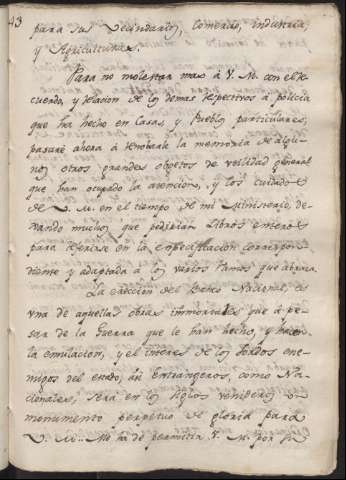 43
para sus Vecindarios, Comercio, industria,
y Agricultura.
Para no molestar mas à V. M. con el re-
cuerdo, y relacion de los demas respectivos à policia
que ha hecho en Casas, y Pueblos particulares,
pasaré ahora à renobarle la memoria de algu-
nos otros grandes objetos de utilidad general
que han ocupado la atencion, y los cuidados
de V. M. en el tiempo de mi Ministerio, de-
xando muchos que pedirian Libros enteros
para leerse en la especificacion correspon-
diente y adaptada à los varios ramos que abraza.
La ereccion del Banco Nacional, es
una de aquellas obras immortales que à pe-
sar de la Guerra que le han hecho, y hacen
la emulacion, y el interes de los sordos ene-
migos del estado, asi Extrangeros, como Na-
cionales, será en los siglos venideros un
monumento perpetuo de gloria para
V. M. Me ha de permitir V. M. por su